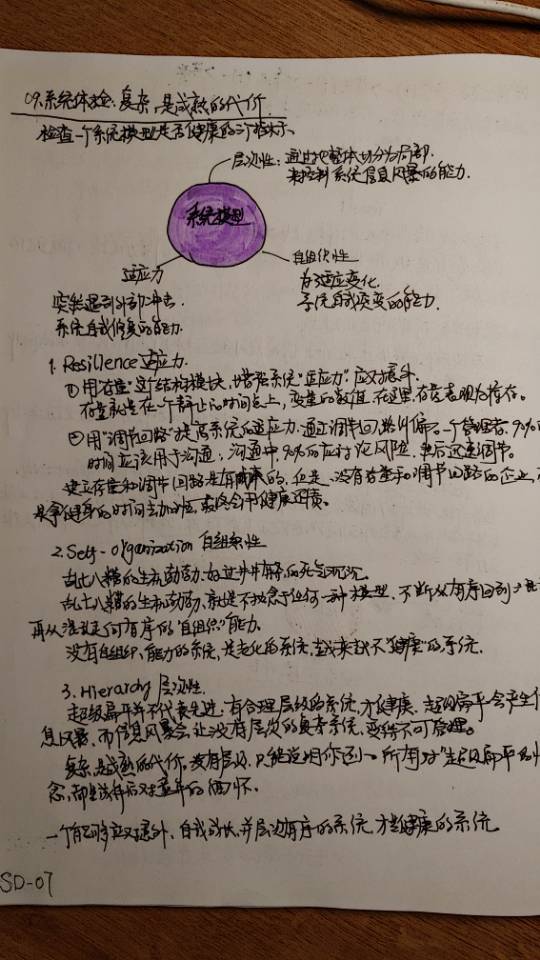 09.系统体检:复杂,是成熟的代价.
检查一个系统模型是否健康的三个指标.
层次性:通过把整体切分为局部.
来控制系统信息风暴的能力.
系统模型
自组织性
为了适应变化.
系统自我突变的能力.
适应力
突然遇到外部冲击.
系统自我修复的能力.
1. Resilience 适应力.
①用“存量”这个结构模块,增强系统“适应力”.应对意外.
存量就是在一个静止的时间点上,变量的数值.在这里,存量表现为库存.
②用“调节回路”提高系统的适应力.通过调节回路纠偏。一个管理者,90%的
时间应该用于沟通;沟通中,90%的应讨论风险,其后迅速调节。
建立存量和调节回路是有成本的,但是,没有存量和调节回路的企业,
是拿健身的时间去加班,最终会用健康还债。
2. Self-organization 自组织性
乱七八糟的生机勃勃,好过井井有条的死气沉沉.
乱七八糟的生机勃勃,就是不执念于任何一种模型,不断从有序回到
再从混乱走向有序的“自组织”能力.
没有自组织能力的系统,是老化的系统,越来越不“健康”的系统.
3. Hierarchy 层次性.
超级扁平并不代表先进,有合理层级的系统,才健康.超级扁平会产生信
息风暴,而信息风暴会让没有层次的复杂系统,变得不可管理。
复杂,是成熟的代价。没有层级,只能说明你还小。所有对“超级扁平”的
念,都是成年后对童年的缅怀.
一个能够应对意外、自我成长,并层次有序的系统,才是健康的系统.
SD-07